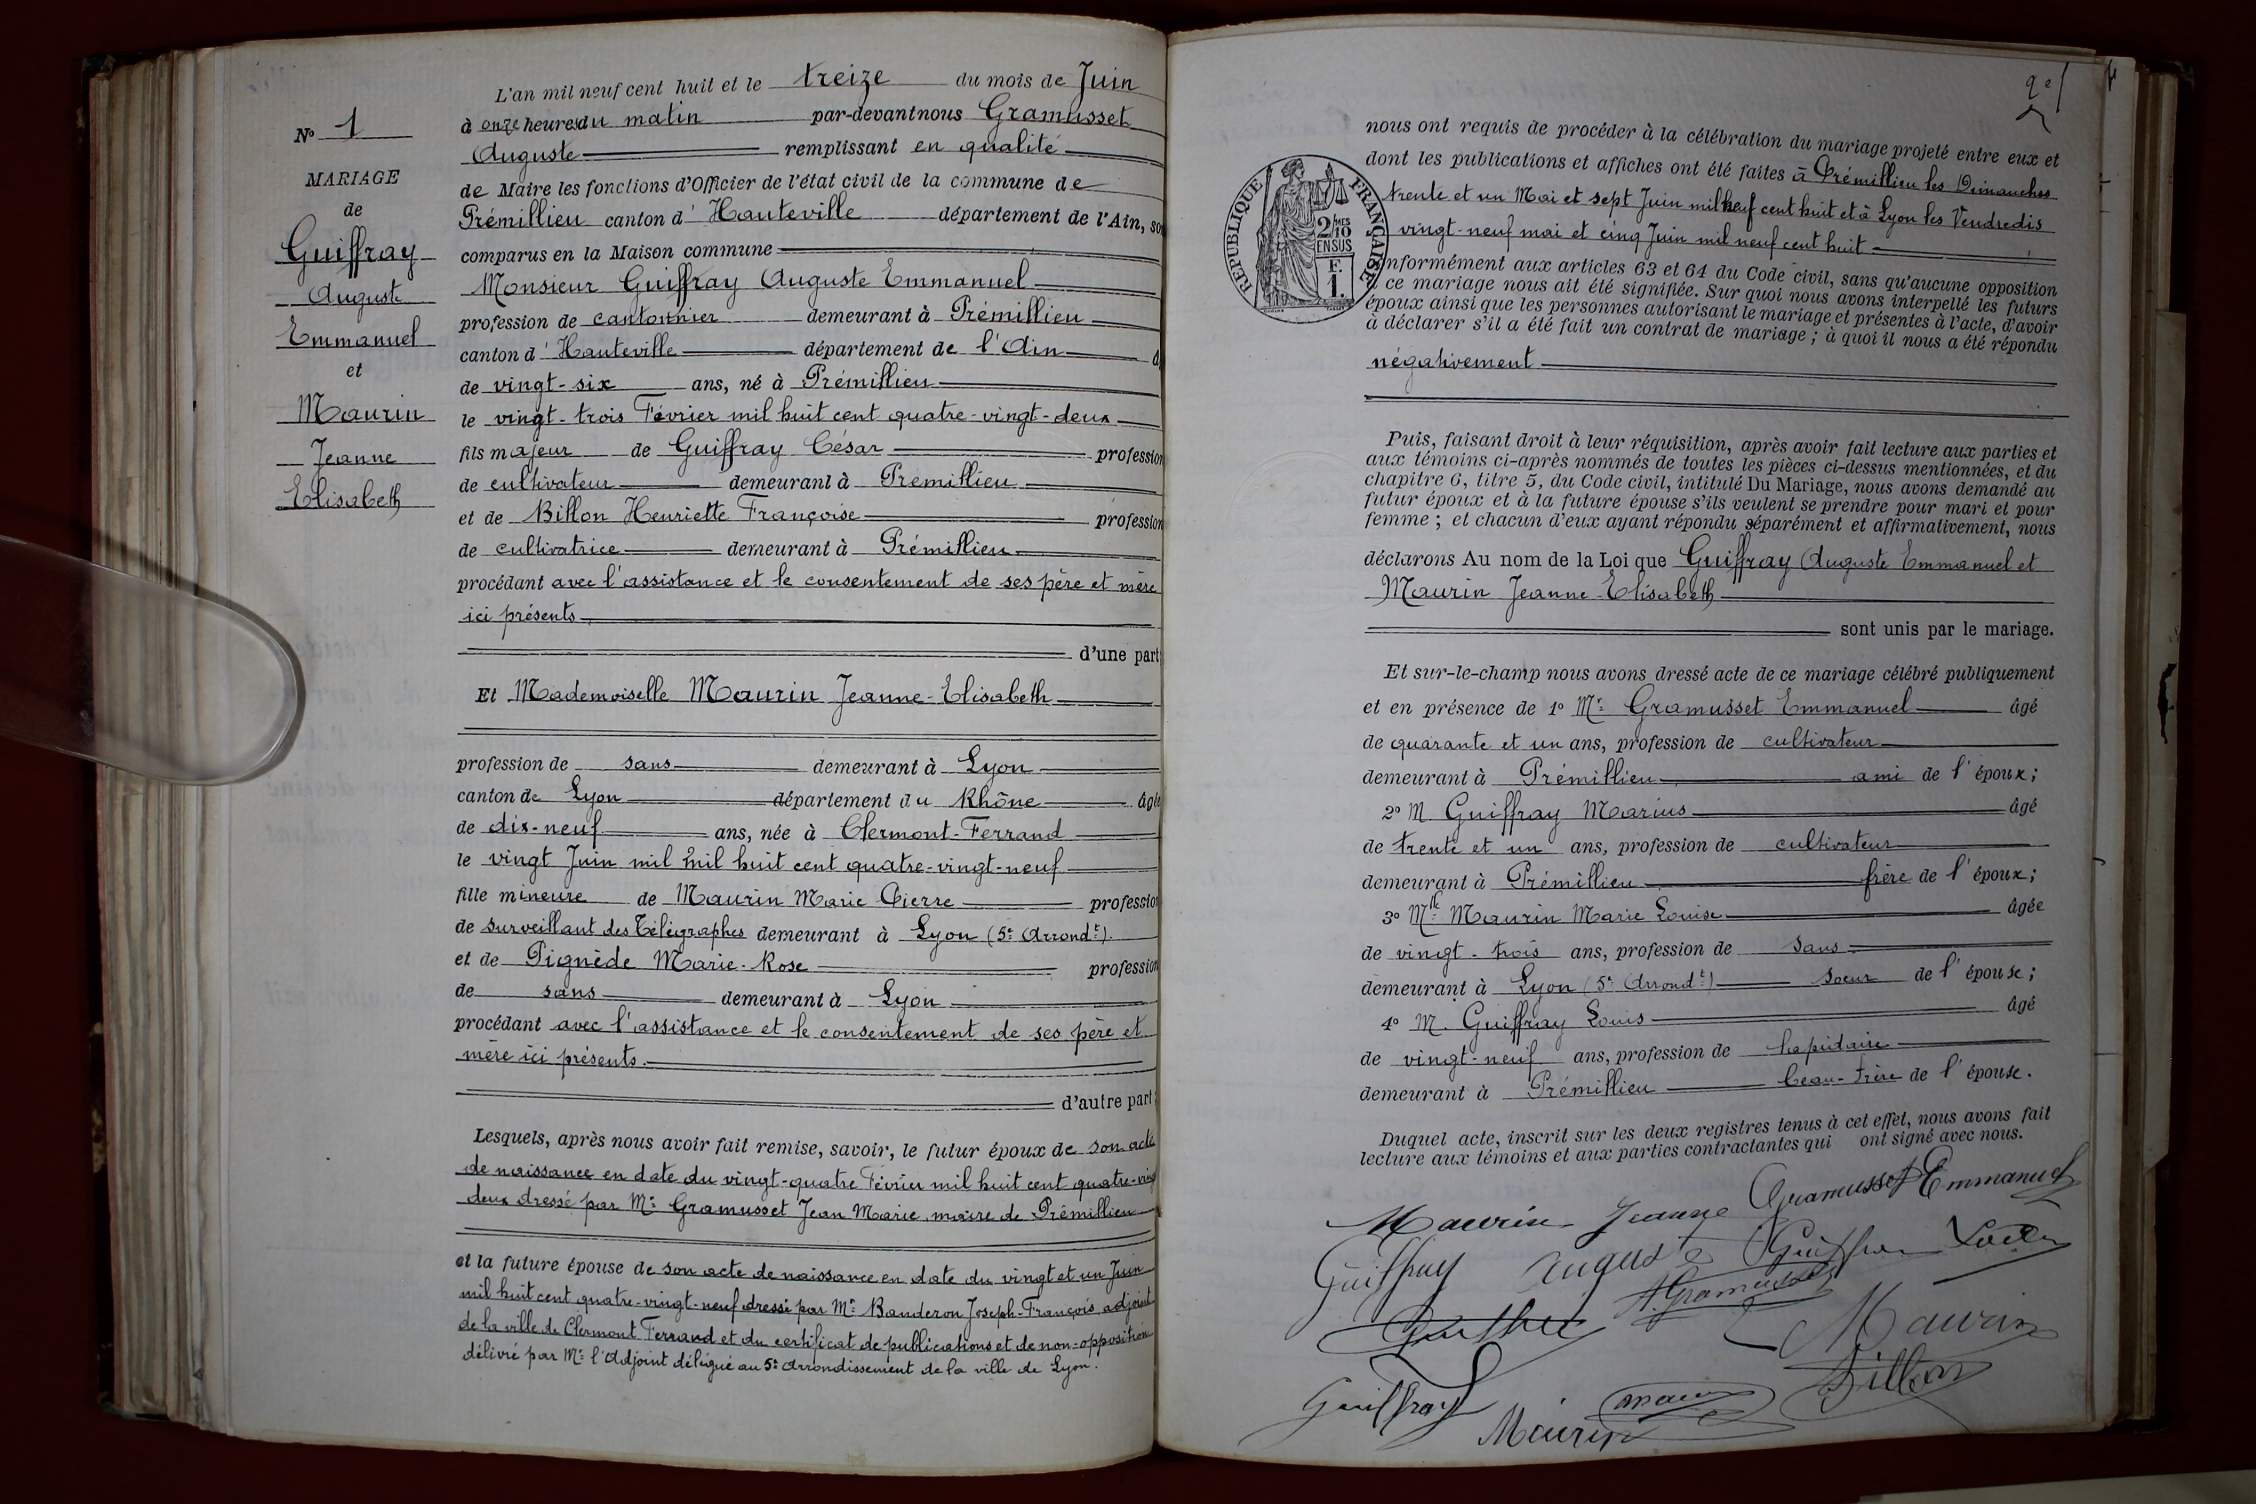 N° 1
MARIAGE
de
Guiffray
Auguste
Emmanuel
et
Maurin
Jeanne
Elisabeth
L'an mil neuf cent huit et le treize du mois de Juin
à onze heures du matin par-devant nous Gramusset
Auguste remplissant en qualité
de Maire les fonctions d'Officier de l'état civil de la commune de
Prémillieu canton d'Hauteville département de l'Ain, so
comparus en la Maison commune
Monsieur Guiffray Auguste Emmanuel
profession de cantonnier demeurant à Prémillieu
canton d'Hauteville département de l'Ain
de vingt-six ans, né à Prémillieu
le vingt-trois Février mil huit cent quatre-vingt-deux
fils majeur de Guiffray César profession
de cultivateur demeurant à Prémillieu
et de Billon Henriette Françoise profession
de cultivatrice demeurant à Prémillieu
procédant avec l'assistance et le consentement de ses père et mère
ici présents
d'une part
Et Mademoiselle Maurin Jeanne-Elisabeth
profession de sans demeurant à Lyon
canton de Lyon département du Rhône âgée
de dix-neuf ans, née à Clermont-Ferrand
le vingt Juin mil mil huit cent quatre-vingt-neuf
fille mineure de Maurin Marie Pierre profession
de surveillant des Télégraphes demeurant à Lyon (5e Arrondt)
et de Pignède Marie-Rose profession
de sans demeurant à Lyon
procédant avec l'assistance et le consentement de ses père et
mère ici présents.
d'autre part ;
Lesquels, après nous avoir fait remise, savoir, le futur époux de son acte
de naissance en date du vingt-quatre Février mil huit cent quatre-ving
deux dressé par Mr Gramusset Jean Marie, maire de Prémillieu
et la future épouse de son acte de naissance en date du vingt et un Juin
mil huit cent quatre-vingt-neuf dressé par Mr Banderon Joseph-François adjoint
de la ville de Clermont Ferrand et du certificat de publications et de non-opposition
délivré par Mr l'Adjoint délégué au 5e arrondissement de la ville de Lyon.
RÉPUBLIQUE FRANÇAISE
2/10MES
EN SUS
F.
1.
nous ont requis de procéder à la célébration du mariage projeté entre eux et
dont les publications et affiches ont été faites à Prémillieu les Dimanches
trente et un Mai et sept Juin mil neuf cent huit et à Lyon les Vendredis
vingt-neuf mai et cinq Juin mil neuf cent huit
nformément aux articles 63 et 64 du Code civil, sans qu'aucune opposition
ce mariage nous ait été signifiée. Sur quoi nous avons interpellé les futurs
époux ainsi que les personnes autorisant le mariage et présentes à l'acte, d'avoir
à déclarer s'il a été fait un contrat de mariage ; à quoi il nous a été répondu
négativement
Puis, faisant droit à leur réquisition, après avoir fait lecture aux parties et
aux témoins ci-après nommés de toutes les pièces ci-dessus mentionnées, et du
chapitre 6, titre 5, du Code civil, intitulé Du Mariage, nous avons demandé au
futur époux et à la future épouse s'ils veulent se prendre pour mari et pour
femme ; et chacun d'eux ayant répondu séparément et affirmativement, nous
déclarons Au nom de la Loi que Guiffray Auguste Emmanuel et
Maurin Jeanne-Elisabeth
sont unis par le mariage.
Et sur-le-champ nous avons dressé acte de ce mariage célébré publiquement
et en présence de 1° Mr Gramusset Emmanuel âgé
de quarante et un ans, profession de cultivateur
demeurant à Prémillieu ami de l'époux ;
2° M. Guiffray Marius âgé
de trente et un ans, profession de cultivateur
demeurant à Prémillieu frère de l'époux ;
3° Mlle Maurin Marie Louise âgée
de vingt-trois ans, profession de sans
demeurant à Lyon (5e Arrondt) soeur de l'épouse ;
4° M. Guiffray Louis âgé
de vingt-neuf ans, profession de lapidaire
demeurant à Prémillieu beau-frère de l'épouse.
Duquel acte, inscrit sur les deux registres tenus à cet effet, nous avons fait
lecture aux témoins et aux parties contractantes qui ont signé avec nous.
Maurin Jeanne Gramusset Emmanuel
Guiffray Auguste Guiffray
A. Gramusset
Maurin
Billon
Guiffray
Maurin